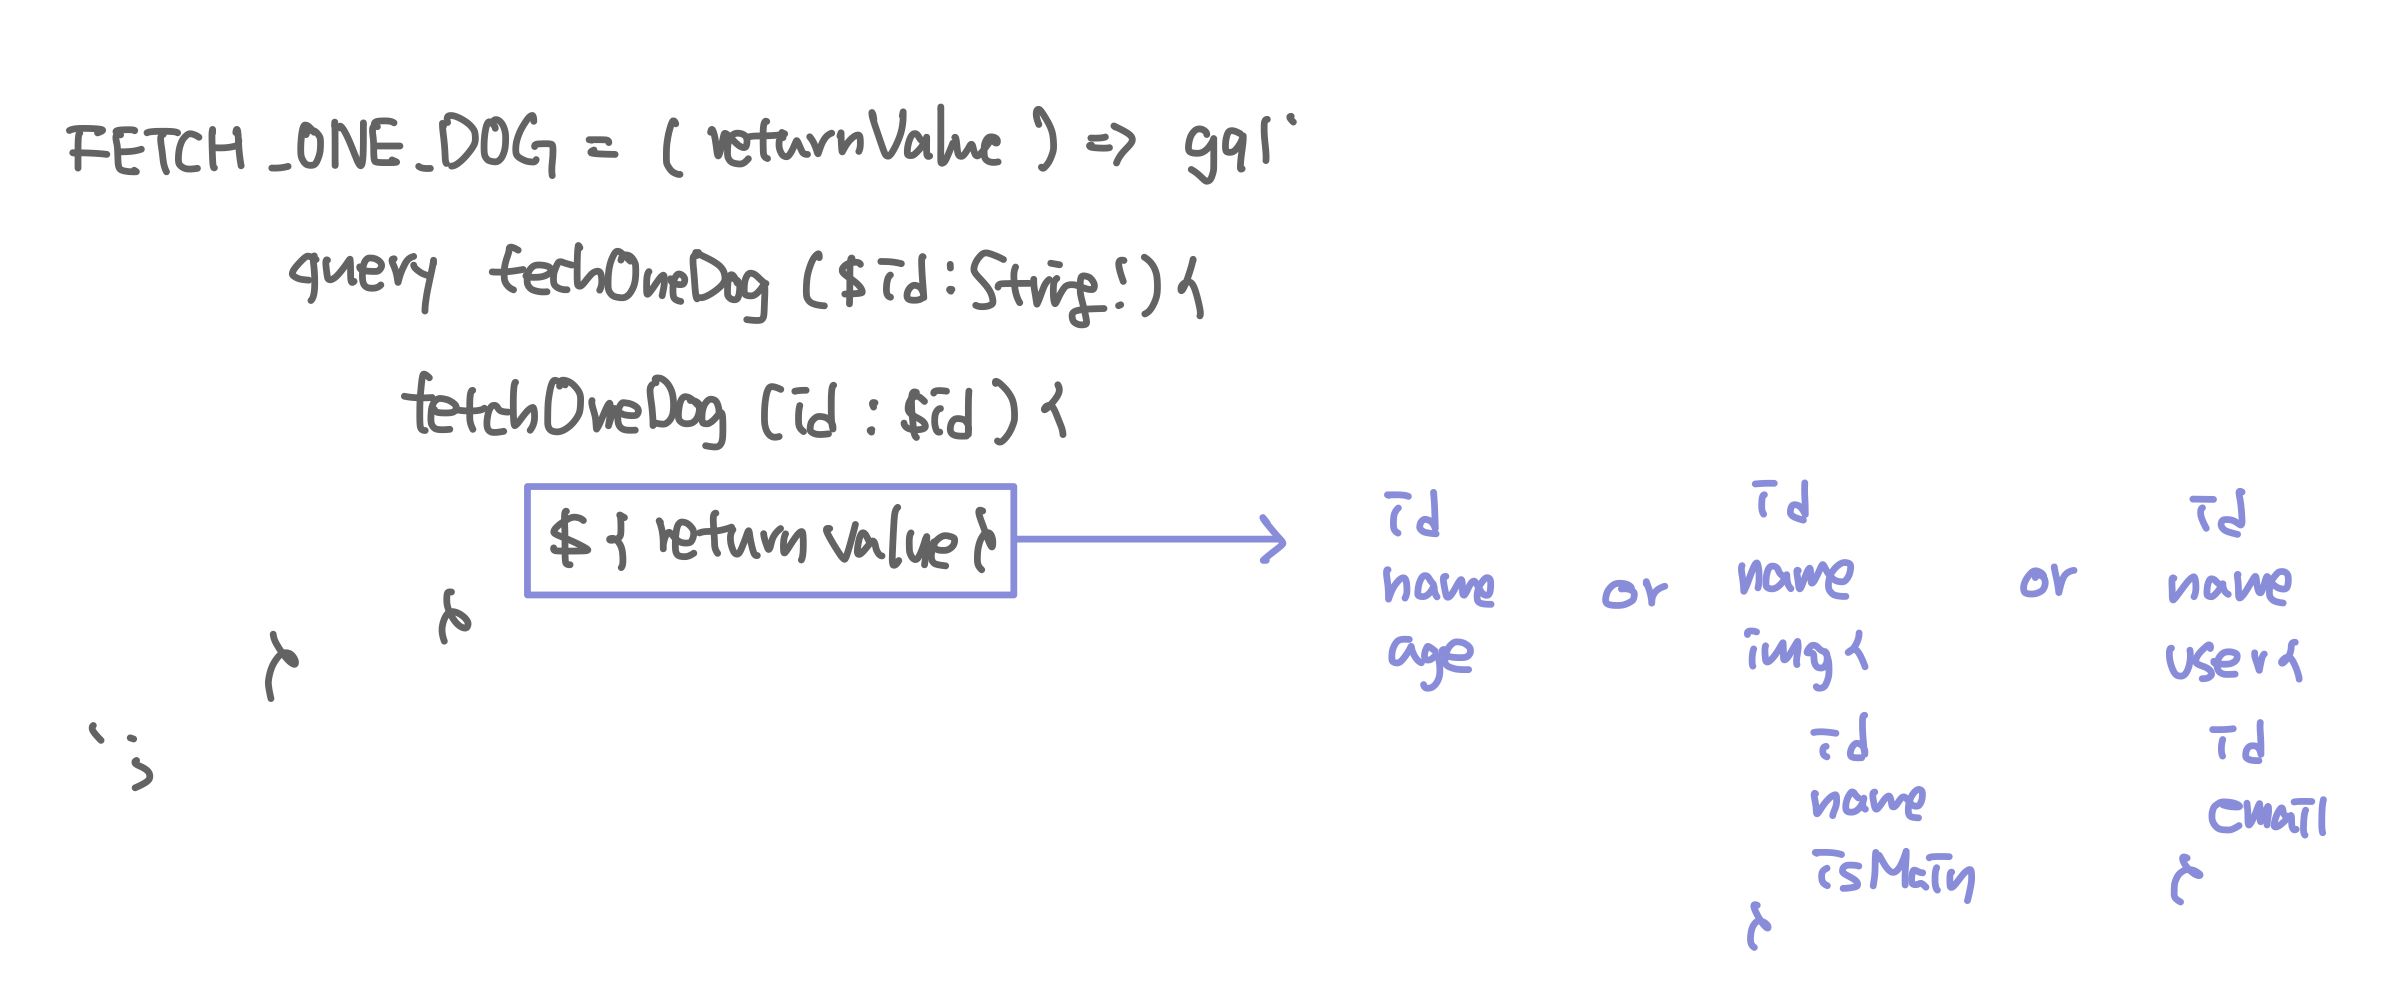 FETCH_ONE_DOG = ( returnValue ) => gql`
query fechOneDog ($id:String!){
fetchOneDog (id : $id) {
${ return value}
}
}
`;
id
name
age
or
id
name
img{
id
name
isMain
}
or
id
name
user{
id
email
}